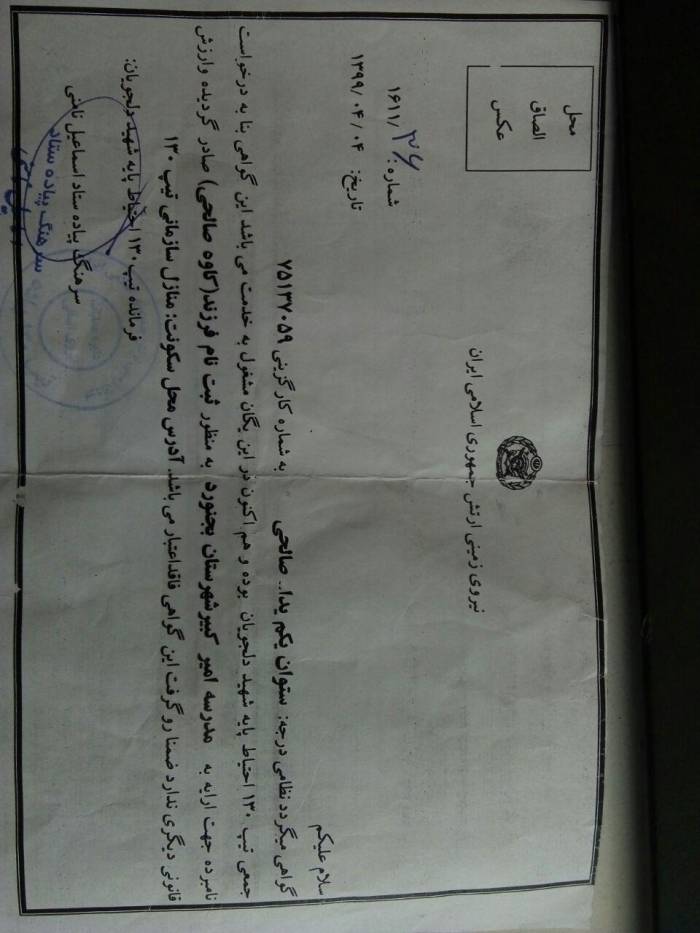 محل
الصاق
عکس
نیروی زمینی ارتش جمهوری اسلامی ایران
شماره: ۱۶۱۱/۳۶
تاریخ: ۱۳۹۹/۰۴/۰۴
سلام علیکم
گواهی میگردد نظامی درجه: ستوان یکم یدا.. صالحی به شماره کارگزینی ۷۵۱۳۷۰۵۹
جمعی تیپ ۱۳۰ احتیاط پایه شهید دلجویان بوده و هم اکنون در این یگان مشغول به خدمت می باشد این گواهی بنا به درخواست
نامبرده جهت ارایه به مدرسه امیر کبیرشهرستان بجنورد به منظور ثبت نام فرزند(کاوه صالحی) صادر گردیده وارزش
قانونی دیگری ندارد ضمنا رو گرفت این گواهی فاقداعتبار می باشد. آدرس محل سکونت: منازل سازمانی تیپ ۱۳۰
فرمانده تیپ ۱۳۰ احتیاط پایه شهید دلجویان:
سرهنگ پیاده ستاد اسماعیل نامنی
سرهنگ پیاده ستاد